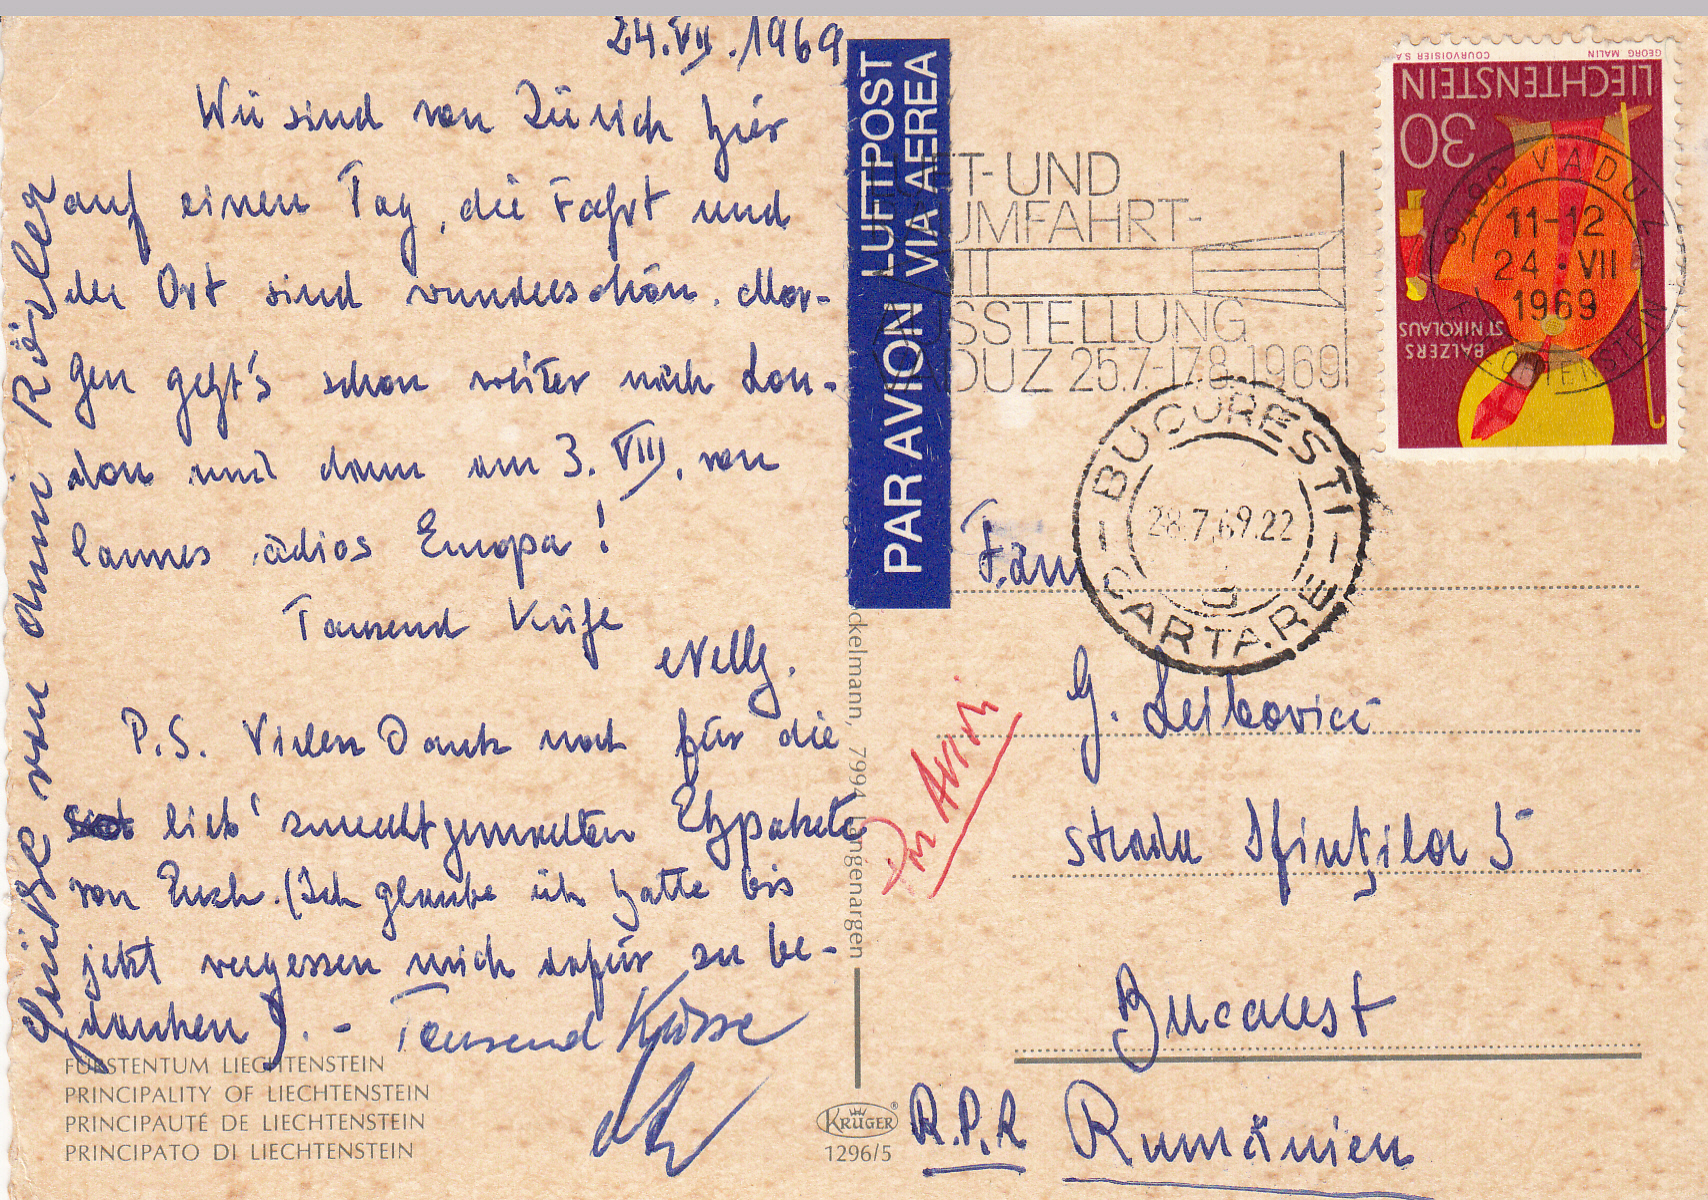 24.VII.1969
Wir sind von Zürich hier
auf einen Tag, die Fahrt und
der Ort sind wunderschön. Mor-
gen geht's schon weiter nach Lon-
don und dann am 3. VIII. von
Cannes adios Europa!
Tausend Küße
Nelly.
P.S. Vielen Dank noch für die
lieb' zurechtgemachten Eßpakete
von Euch. (Ich glaube ich hatte bis
jetzt vergessen mich dafür zu be-
danken). - Tausend Küsse
Grüße von
FÜRSTENTUM LIECHTENSTEIN
PRINCIPALITY OF LIECHTENSTEIN
PRINCIPAUTÉ DE LIECHTENSTEIN
PRINCIPATO DI LIECHTENSTEIN
LUFTPOST
VIA AEREA
PAR AVION
ckelmann, 7994 Langenargen
KRÜGER®
1296/5
T-UND
UMFAHRT-
SSTELLUNG
DUZ 25.7.-17.8.1969
GEORG MALIN
COURVOISIER S.A.
LIECHTENSTEIN
30
BALZERS
ST NIKOLAUS
9490 VADUZ
11-12
24.-VII
1969
LIECHTENSTEIN
BUCUREȘTI
28.7.69.22
CARTARE
Fam
G. Leibovici
strada Sfinților 5
Par Avion
Bucarest
R.P.R Rumänien